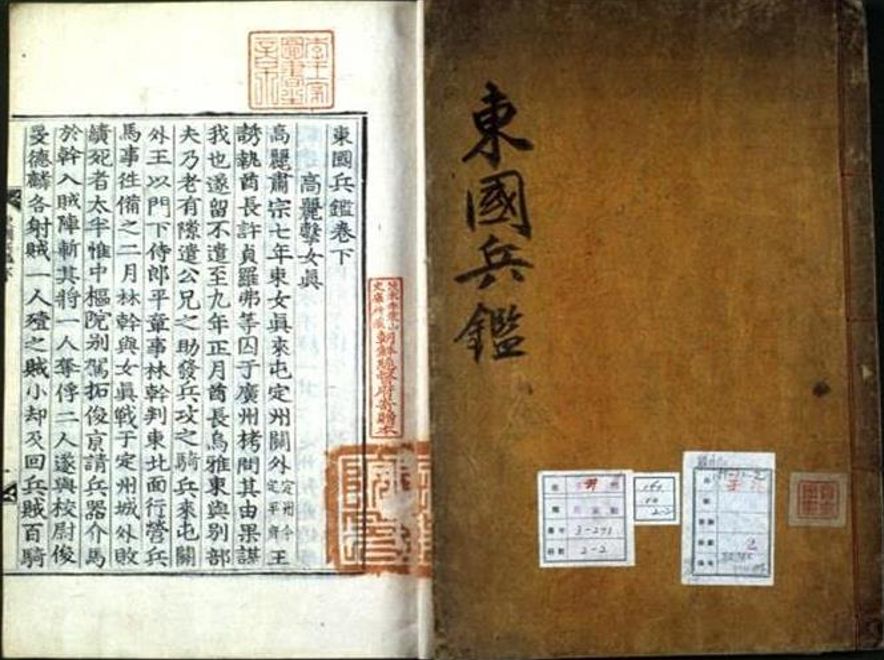 東國兵鑑
東國兵鑑卷下
高麗擊女眞
高麗肅宗七年東女眞來屯定州關外定州今定平府王
誘執酋長許貞羅弗等囚于廣州栲問其由果謀
我也遂留不遣至九年正月酋長烏雅東與別部
夫乃老有隙遣公兄之助發兵攻之騎兵來屯關
外王以門下侍郎平章事林幹判東北面行營兵
馬事往備之二月林幹與女眞戰于定州城外敗
績死者太半惟中樞院別駕拓俊亰請兵器介馬
於幹入賊陣斬其將一人奪俘二人遂與校尉俊
旻德麟各射賊一人殪之賊小却及回兵賊百騎
茂朱赤裳山
史庫所藏
朝鮮總督府寄贈本
3-271
2-2